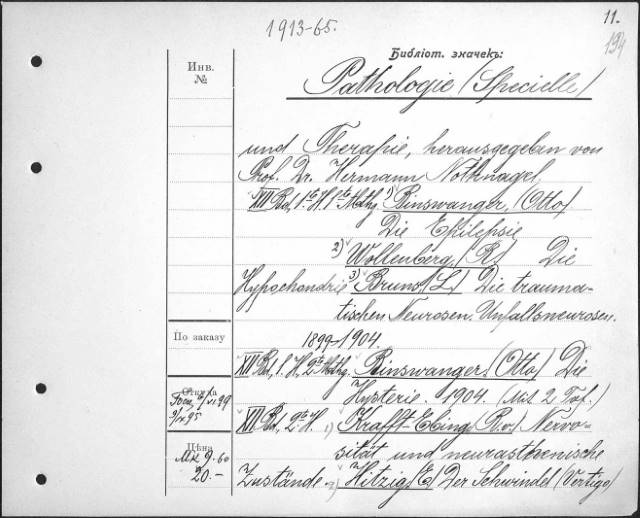 1913-65.
11.
194
Инв.
№
Библіот. значекъ:
Pathologie (Specielle)
und Therapie, herausgegeben von
Prof. Dr. Hermann Nothnagel,
XII Bd, 1te H. 1te Abthg 1) Binswanger, (Otto)
Die Epilepsie
2) Wollenberg, (R.) Die
Hypochondrie 3) Bruns, (L.) Die trauma-
tischen Neurosen. Unfallsneurosen.
1899-1904.
По заказу
XII Bd, 1. H, 2te Abthg. Binswanger (Otto) Die
Hysterie. 1904. (Mit 2 Taf.)
Откуда
XII Bd, 2te H. 1) Krafft-Ebing (R. v.) Nervo-
sität und neurasthenische
Цѣна
Mk 9.60
20.-
Zustände 2) Hitzig (E) Der Schwindel (Vertigo)